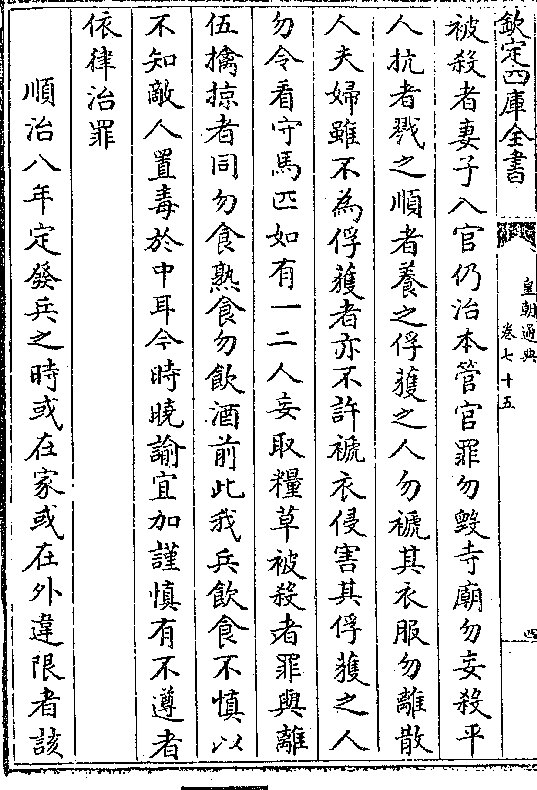 欽定四庫全書
皇朝通典
卷七十五
四
被殺者妻子入官仍治本管官罪勿毀寺廟勿妄殺平
人抗者戮之順者養之俘獲之人勿褫其衣服勿離散
人夫婦雖不為俘獲者亦不許褫衣侵害其俘獲之人
勿令看守馬匹如有一二人妄取糧草被殺者罪與離
伍擒掠者同勿食熟食勿飲酒前此我兵飲食不慎以
不知敵人置毒於中耳今時曉諭宜加謹慎有不遵者
依律治罪
順治八年定發兵之時或在家或在外違限者該